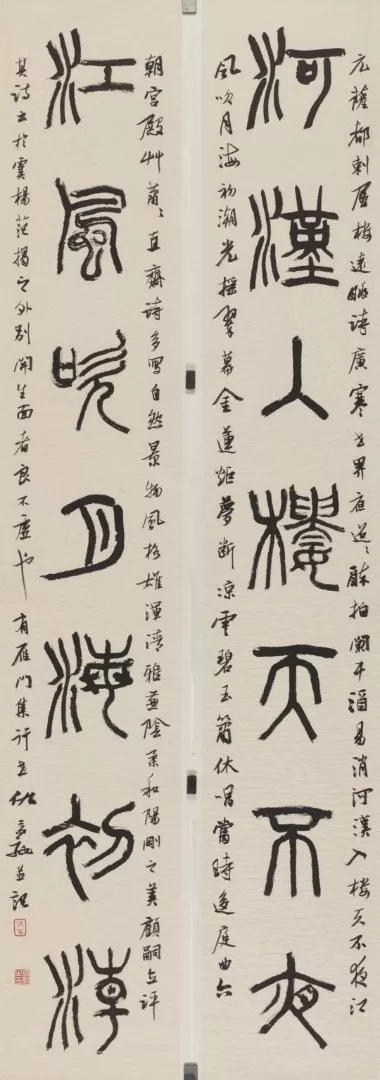 元薩都剌層樓遠眺詩廣寒世界夜迢〻醉拍闌干酒易消河漢入樓天不夜江
河漢入樓天不夜
風吹月海初潮光搖翠幕金蓮炬夢斷涼雲碧玉簫休唱當時後庭曲六
朝宮殿艸蕭〻直齋詩多寫自然景物風格雄渾清雅兼陰柔和陽剛之美顧嗣立評
江風吹月海初潮
其詩云於虞楊范揭之外別開生面者良不虛也有雁門集行世並記